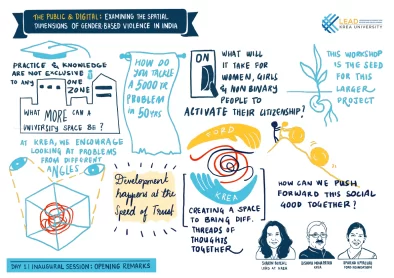 THE PUBLIC & DIGITAL: EXAMINING THE SPATIAL
DIMENSIONS OF GENDER BASED VIOLENCE IN INDIA
LEAD
KREA UNIVERSITY
PRACTICE & KNOWLEDGE
ARE NOT EXCLUSIVE
TO ANY ONE
ZONE
WHAT MORE CAN A
UNIVERSITY SPACE BE?
HOW DO
YOU TACKLE
A 5000 YR
PROBLEM
IN 50 YRS
ON
WHAT WILL
IT TAKE FOR
WOMEN, GIRLS
& NON BINARY
PEOPLE TO
ACTIVATE THEIR CITIZENSHIP?
THIS WORKSHOP
IS THE SEED
FOR THIS
LARGER
PROJECT
AT KREA, WE ENCOURAGE
LOOKING AT PROBLEMS
FROM DIFFERENT
ANGLES
Development
happens at the
Speed of Trust
FORD
KREA
CREATING A SPACE
TO BRING DIFF.
THREADS OF
THOUGHTS
TOGETHER
HOW CAN WE PUSH
FORWARD THIS SOCIAL
GOOD TOGETHER?
SHARON BUTEAU
LEAD AT KREA
KREA
FORD FOUNDATION
DAY 1: INAUGURAL SESSION: OPENING REMARKS